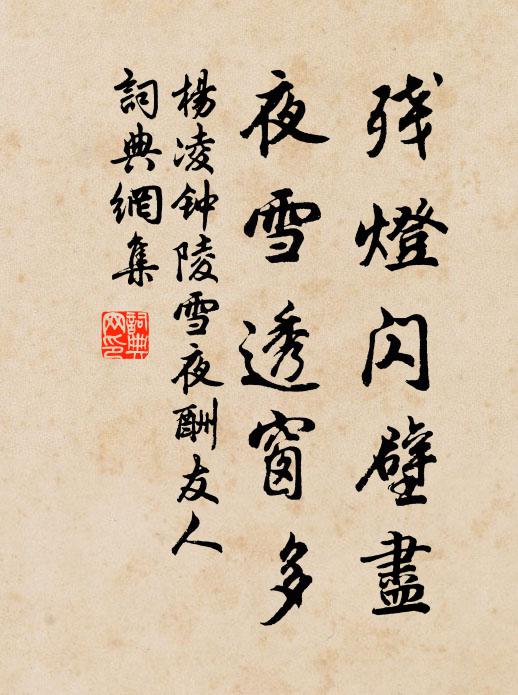 残燈闪壁盡
夜雪透窗多
楊凌钟陵雪夜酬友人
詞典網集
詞典网印